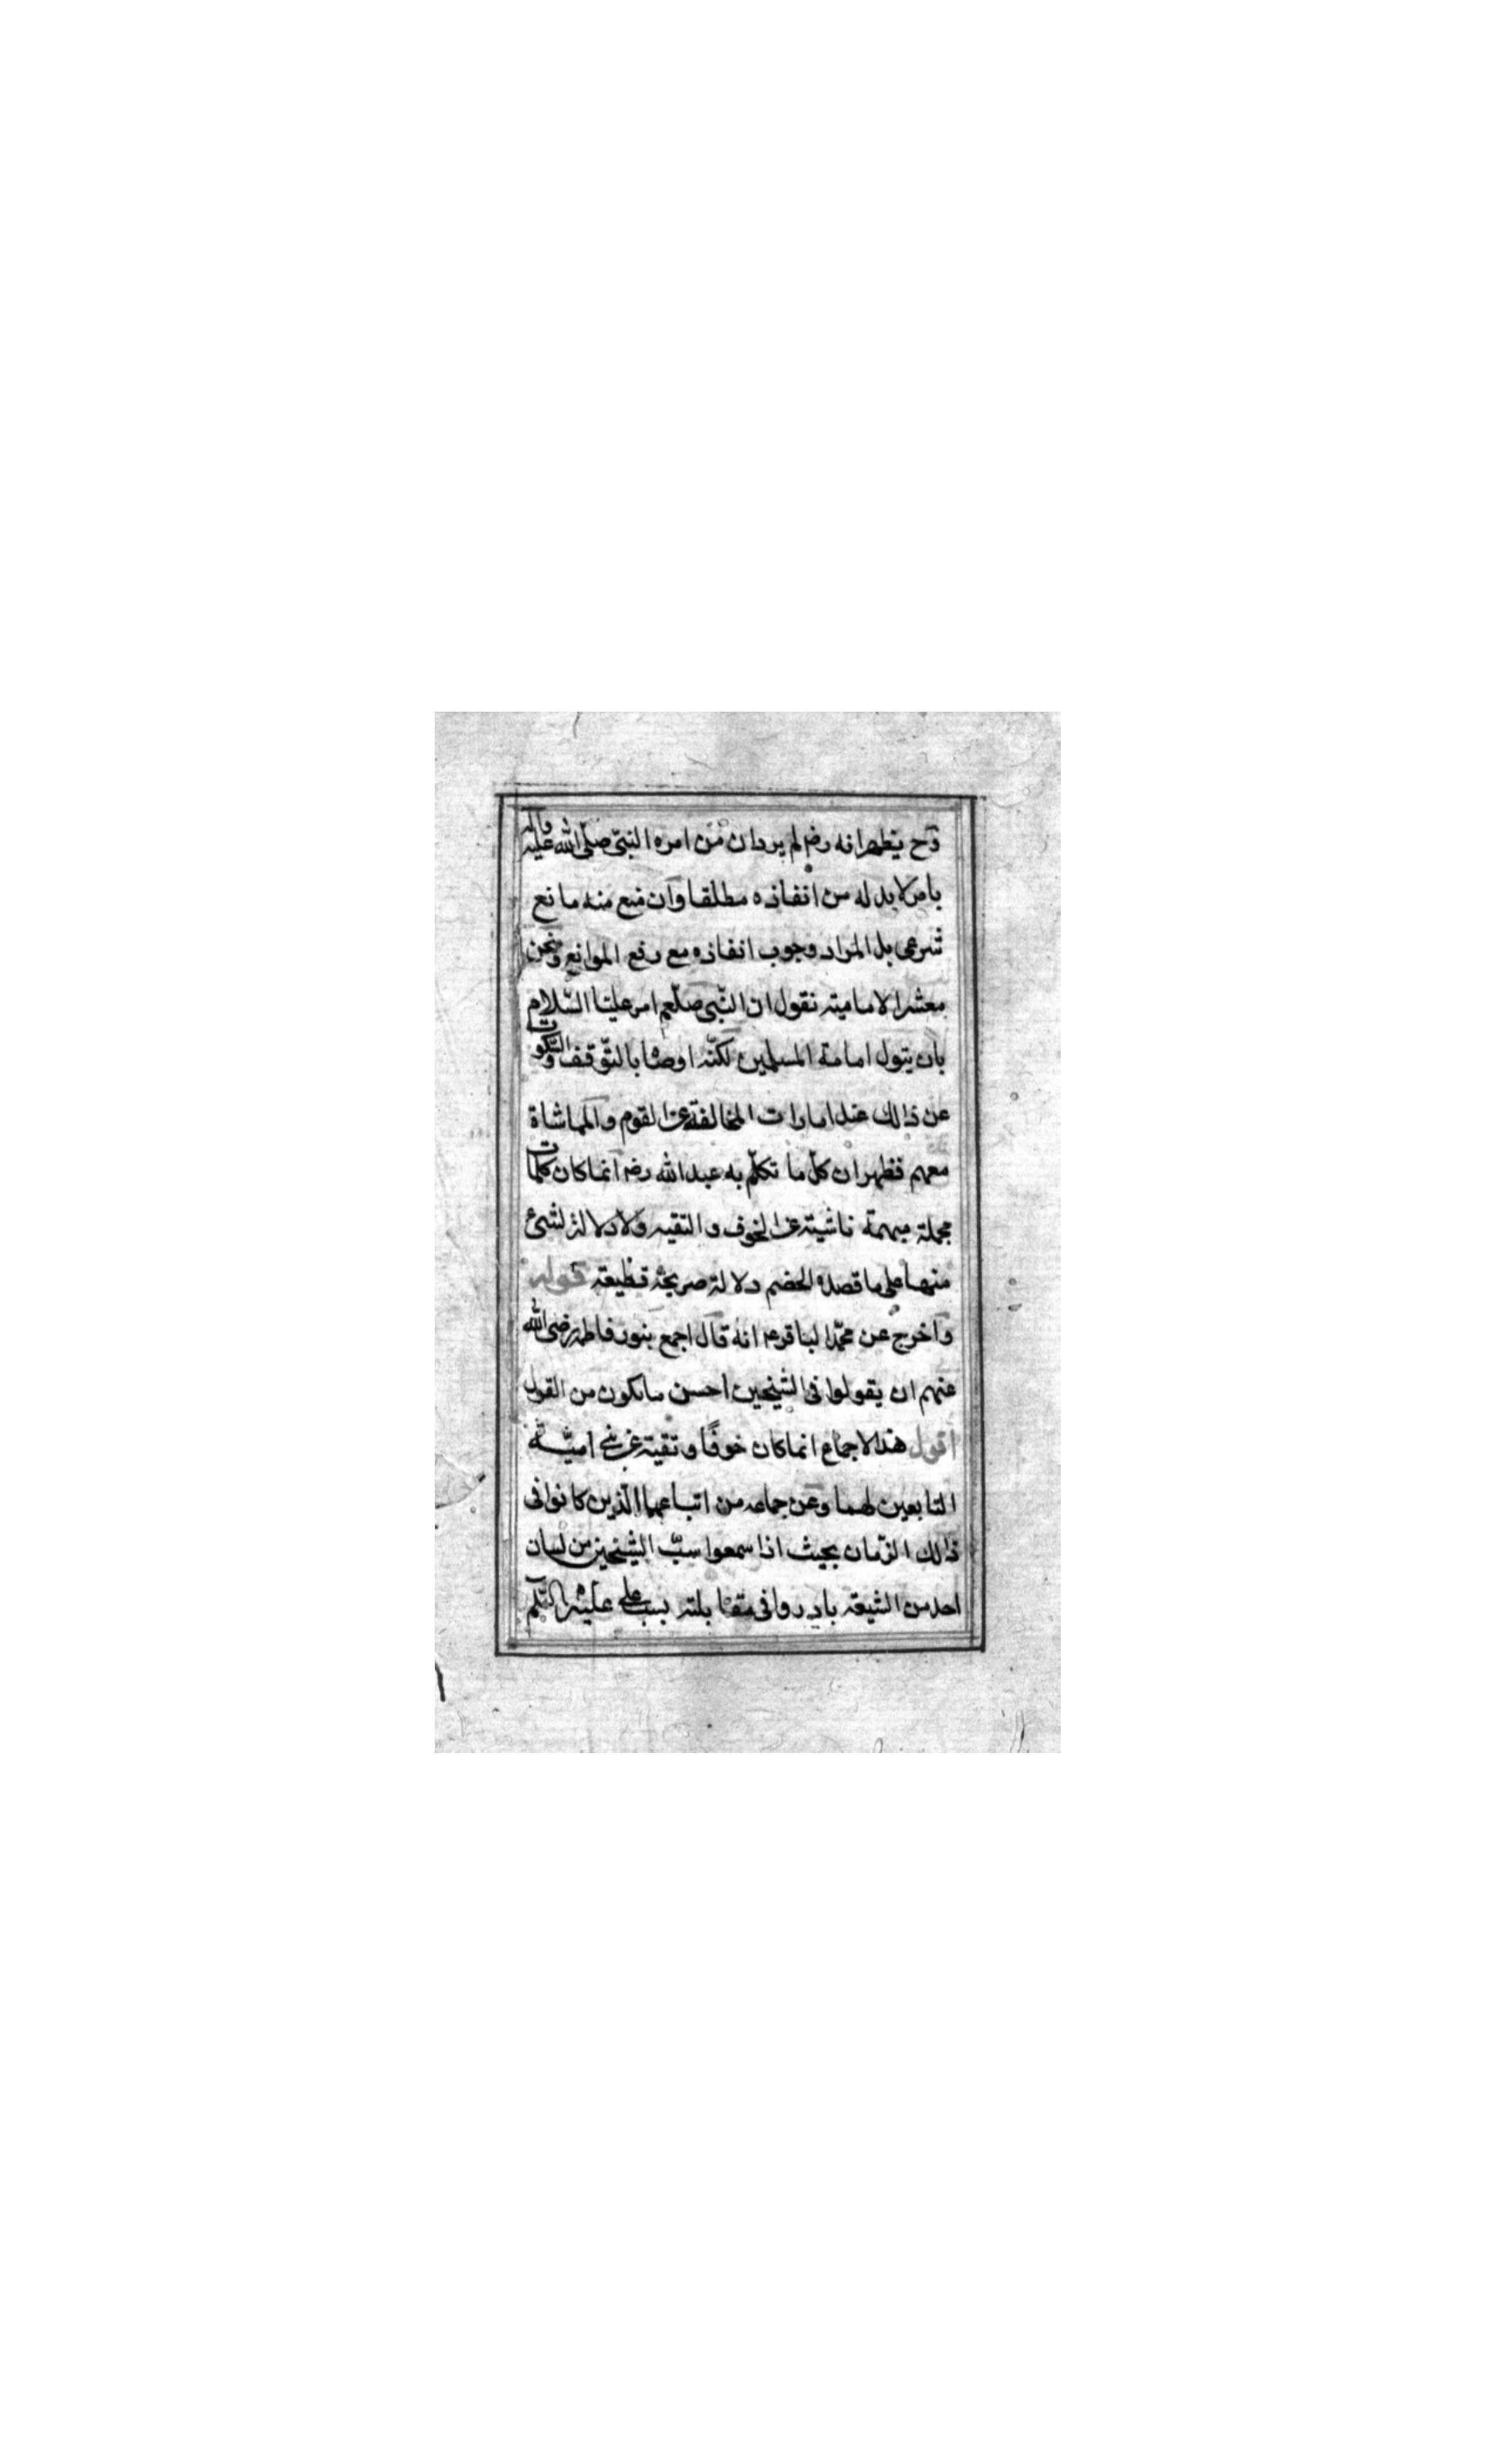 وح يظهر انه رضم لم يرد ان من امره النبي صلى الله عليه وآله
بامر لا بد له من انفاذه مطلقا وان منع منه مانع
شرعى بل المراد وجوب انفاذه مع رفع الموانع ونحن
معشر الامامية نقول ان النبي صلعم امر عليا السلام
بان يتول امامة المسلمين لكنه اوصاه بالتوقف والسكوت
عن ذالك عند امارات المخالفة عن القوم والمماشاة
معهم فظهر ان كل ما تكلم به عبد الله رضم انما كان كلمات
مجملة مبهمة ناشية عن الخوف والتقيه ولا دلالة لشئ
منها على ما قصده الخصم دلالة صريحة قطيعة قوله
واخرج عن محمد الباقر عم انه قال اجمع بنو فاطمة رضى الله
عنهم ان يقولوا فى الشيخين احسن ما يكون من القول
اقول هذا الاجماع انما كان خوفا وتقية عن بنى امية
التابعين لهما وعن جماعه من اتباعهما الذين كانوا فى
ذالك الزمان بحيث اذا سمعوا سب الشيخين من لسان
احد من الشيعة بادروا فى مقابلته بسب على عليه السلم